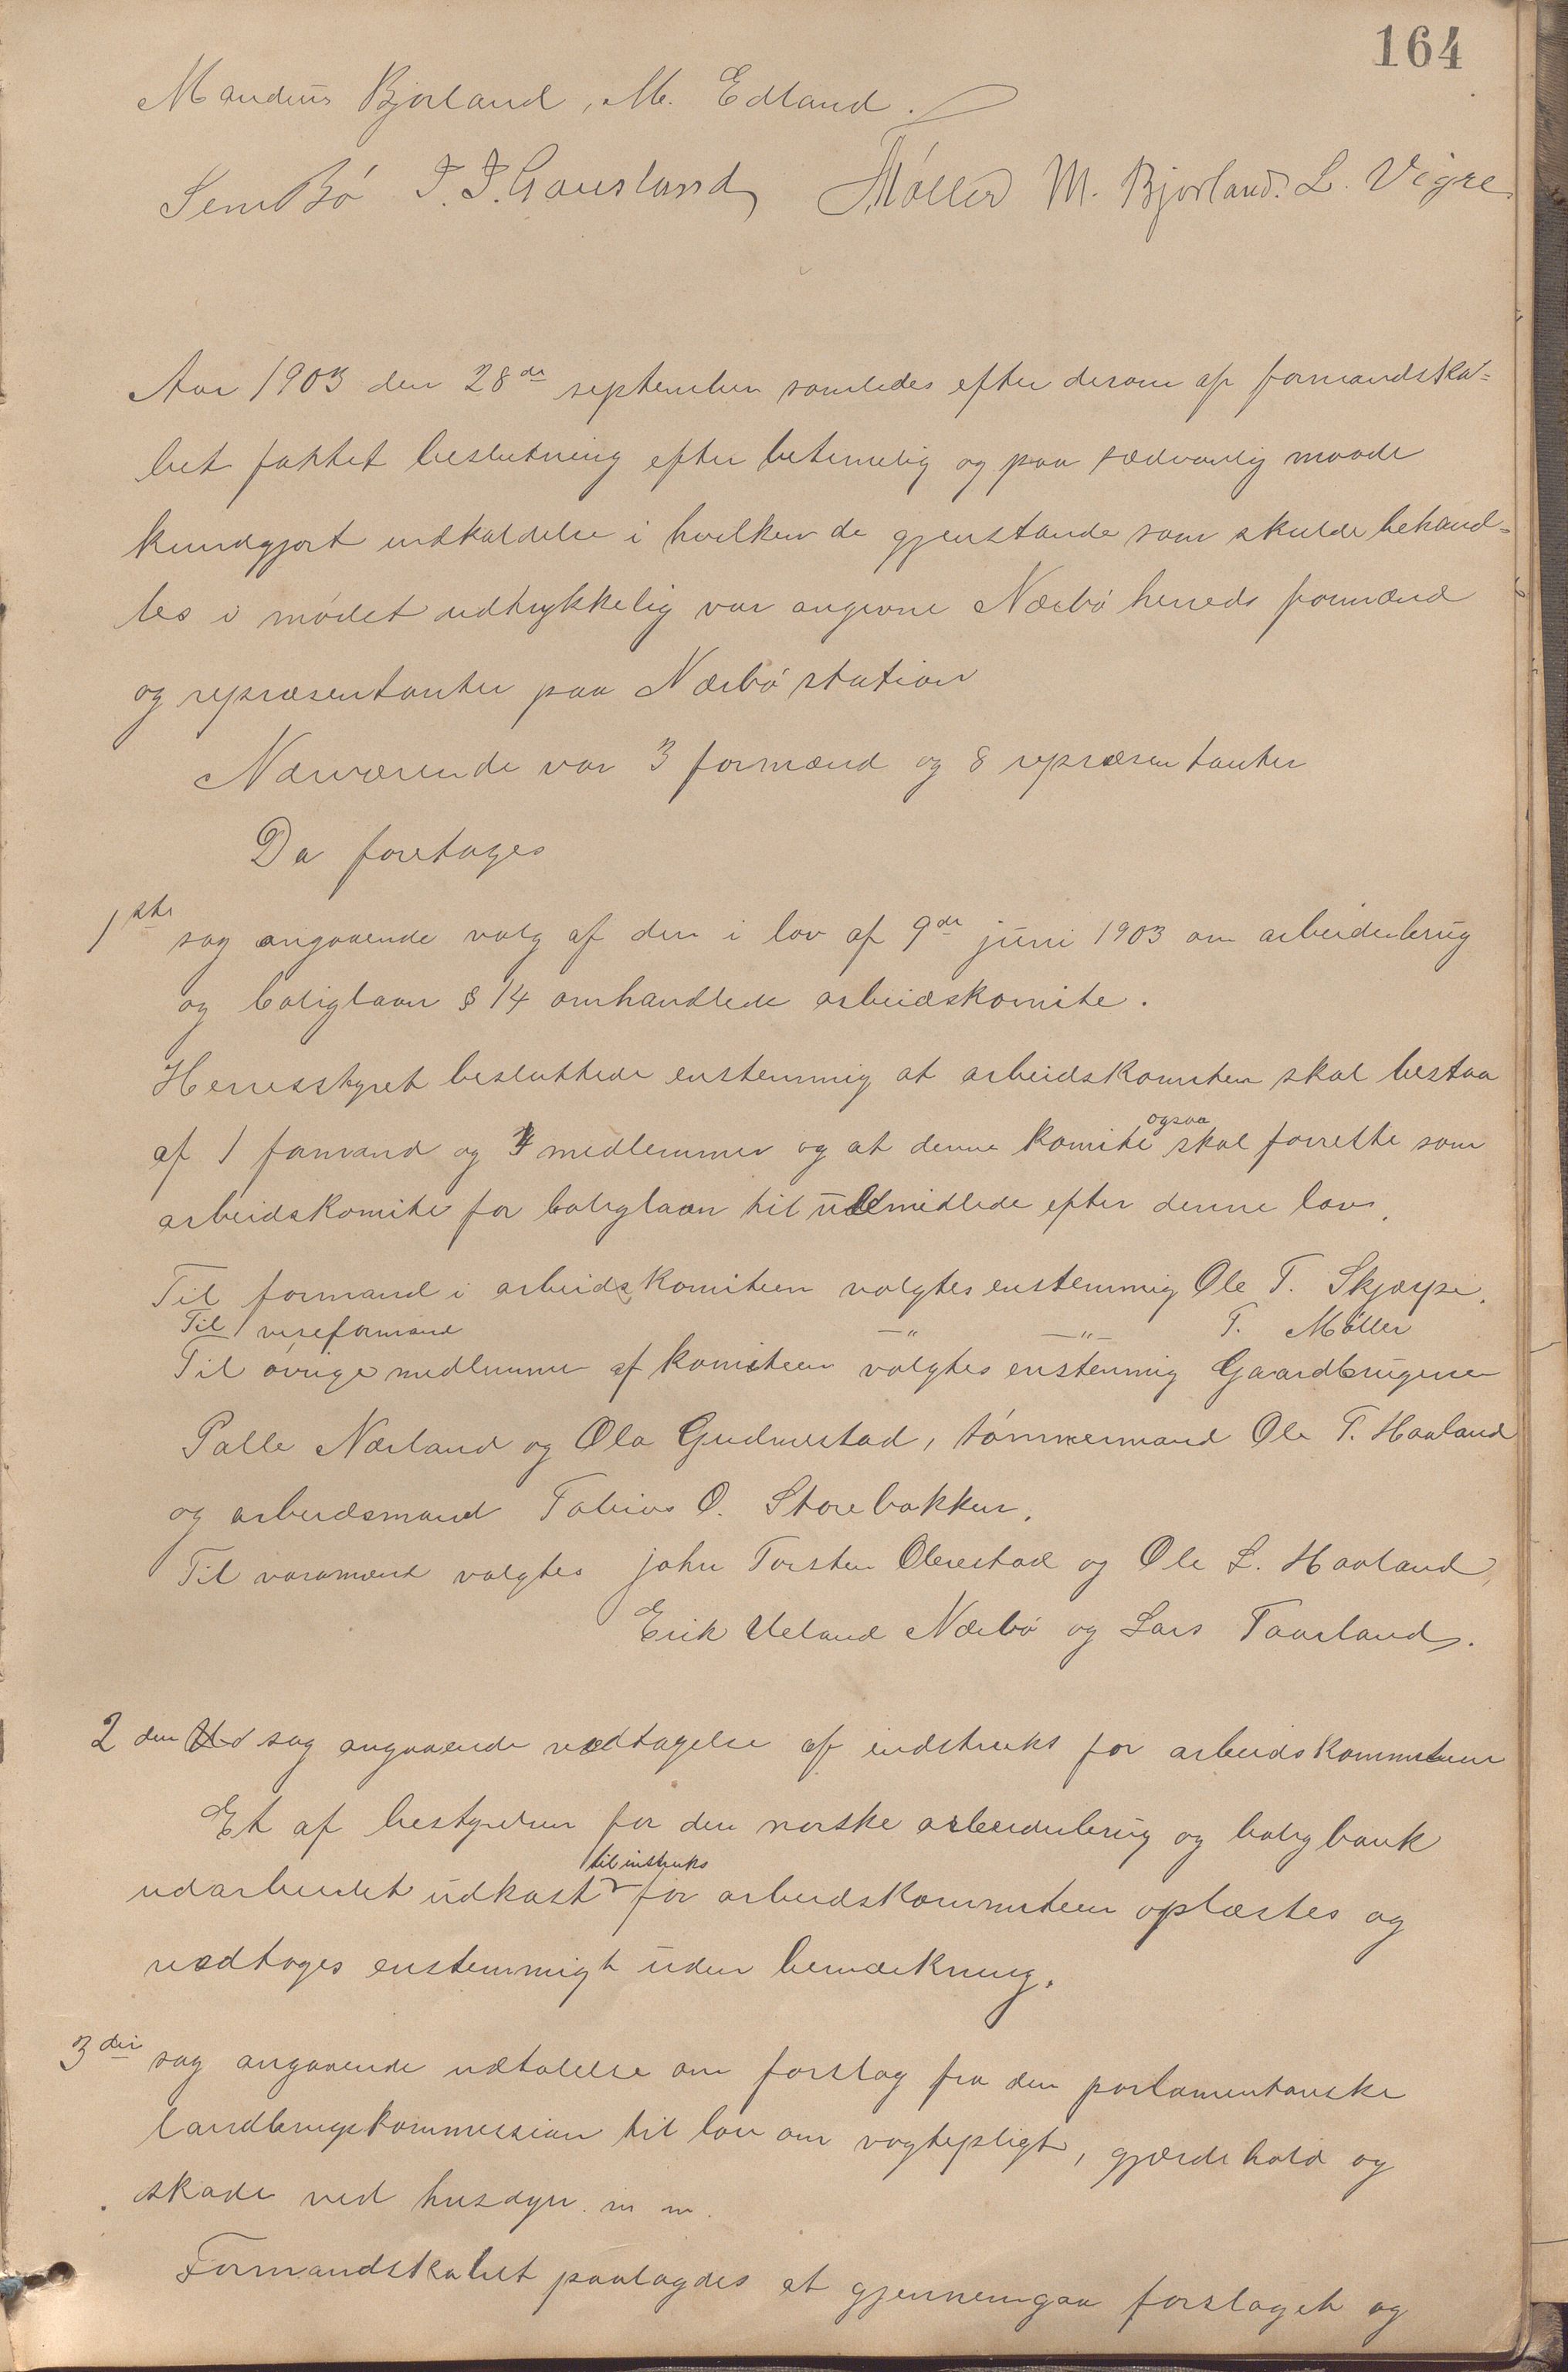 164
Mandius Bjorland, M. Edland.
Sem Bö T. T. Gausland TMöller M. Bjorland. L. Vigre
Aar 1903 den 28de september samledes efter derom af formandska-
bet fattet beslutning efter betimelig og paa sædvanlig maade
kundgjort indkaldelse i hvilken de gjenstande som skulde behand-
les i mödet udtrykkelig var angivne Nærbö herreds formænd
og repræsentanter paa Nærbö station
Nærværende var 3 formænd og 8 repræsentanter
Da foretages
1ste sag angaaende valg af den i lov af 9de juni 1903 om arbeiderbrug
og boliglaan § 14 omhandlede arbeidskomite.
Herresstyret besluttede enstemmig at arbeidskomiteen skal bestaa
af 1 formand og 4 medlemmer og at denne komite ogsaa skal forrette som
arbeidskomite for boliglaan til ubemidlede efter denne lov.
Til formand i arbeidskomiteen valgtes enstemmig Ole T. Skjærpe.
Til viseformand -"- -"- T. Möller
Til övrige medlemmer af komiteen valgtes enstemmig Gaardbrugerne
Palle Nærland og Ola Gudmestad, tömmermand Ole T. Haaland
og arbeidsmand Tobias O. Storebakken.
Til varamænd valgtes john Torsten Obrestad og Ole L. Haaland,
Erik Ueland Nærbö og Lars Taarland.
2den sag angaaende vedtagelse af indstruks for arbeidskommiteen
Et af bestyrelsen for den norske arbeiderbrug og boligbank
udarbeidet udkast til instruks for arbeidskommiteen oplæstes og
vedtoges enstemmigt uden bemærkning.
3die sag angaaende udtalelse om forslag fra den parlamentariske
landbrugskommission til lov om vogtepligt, gjærdehold og
skade ved husdyr m m.
Formandskabet paalagdes at gjennemgaa forslaget og